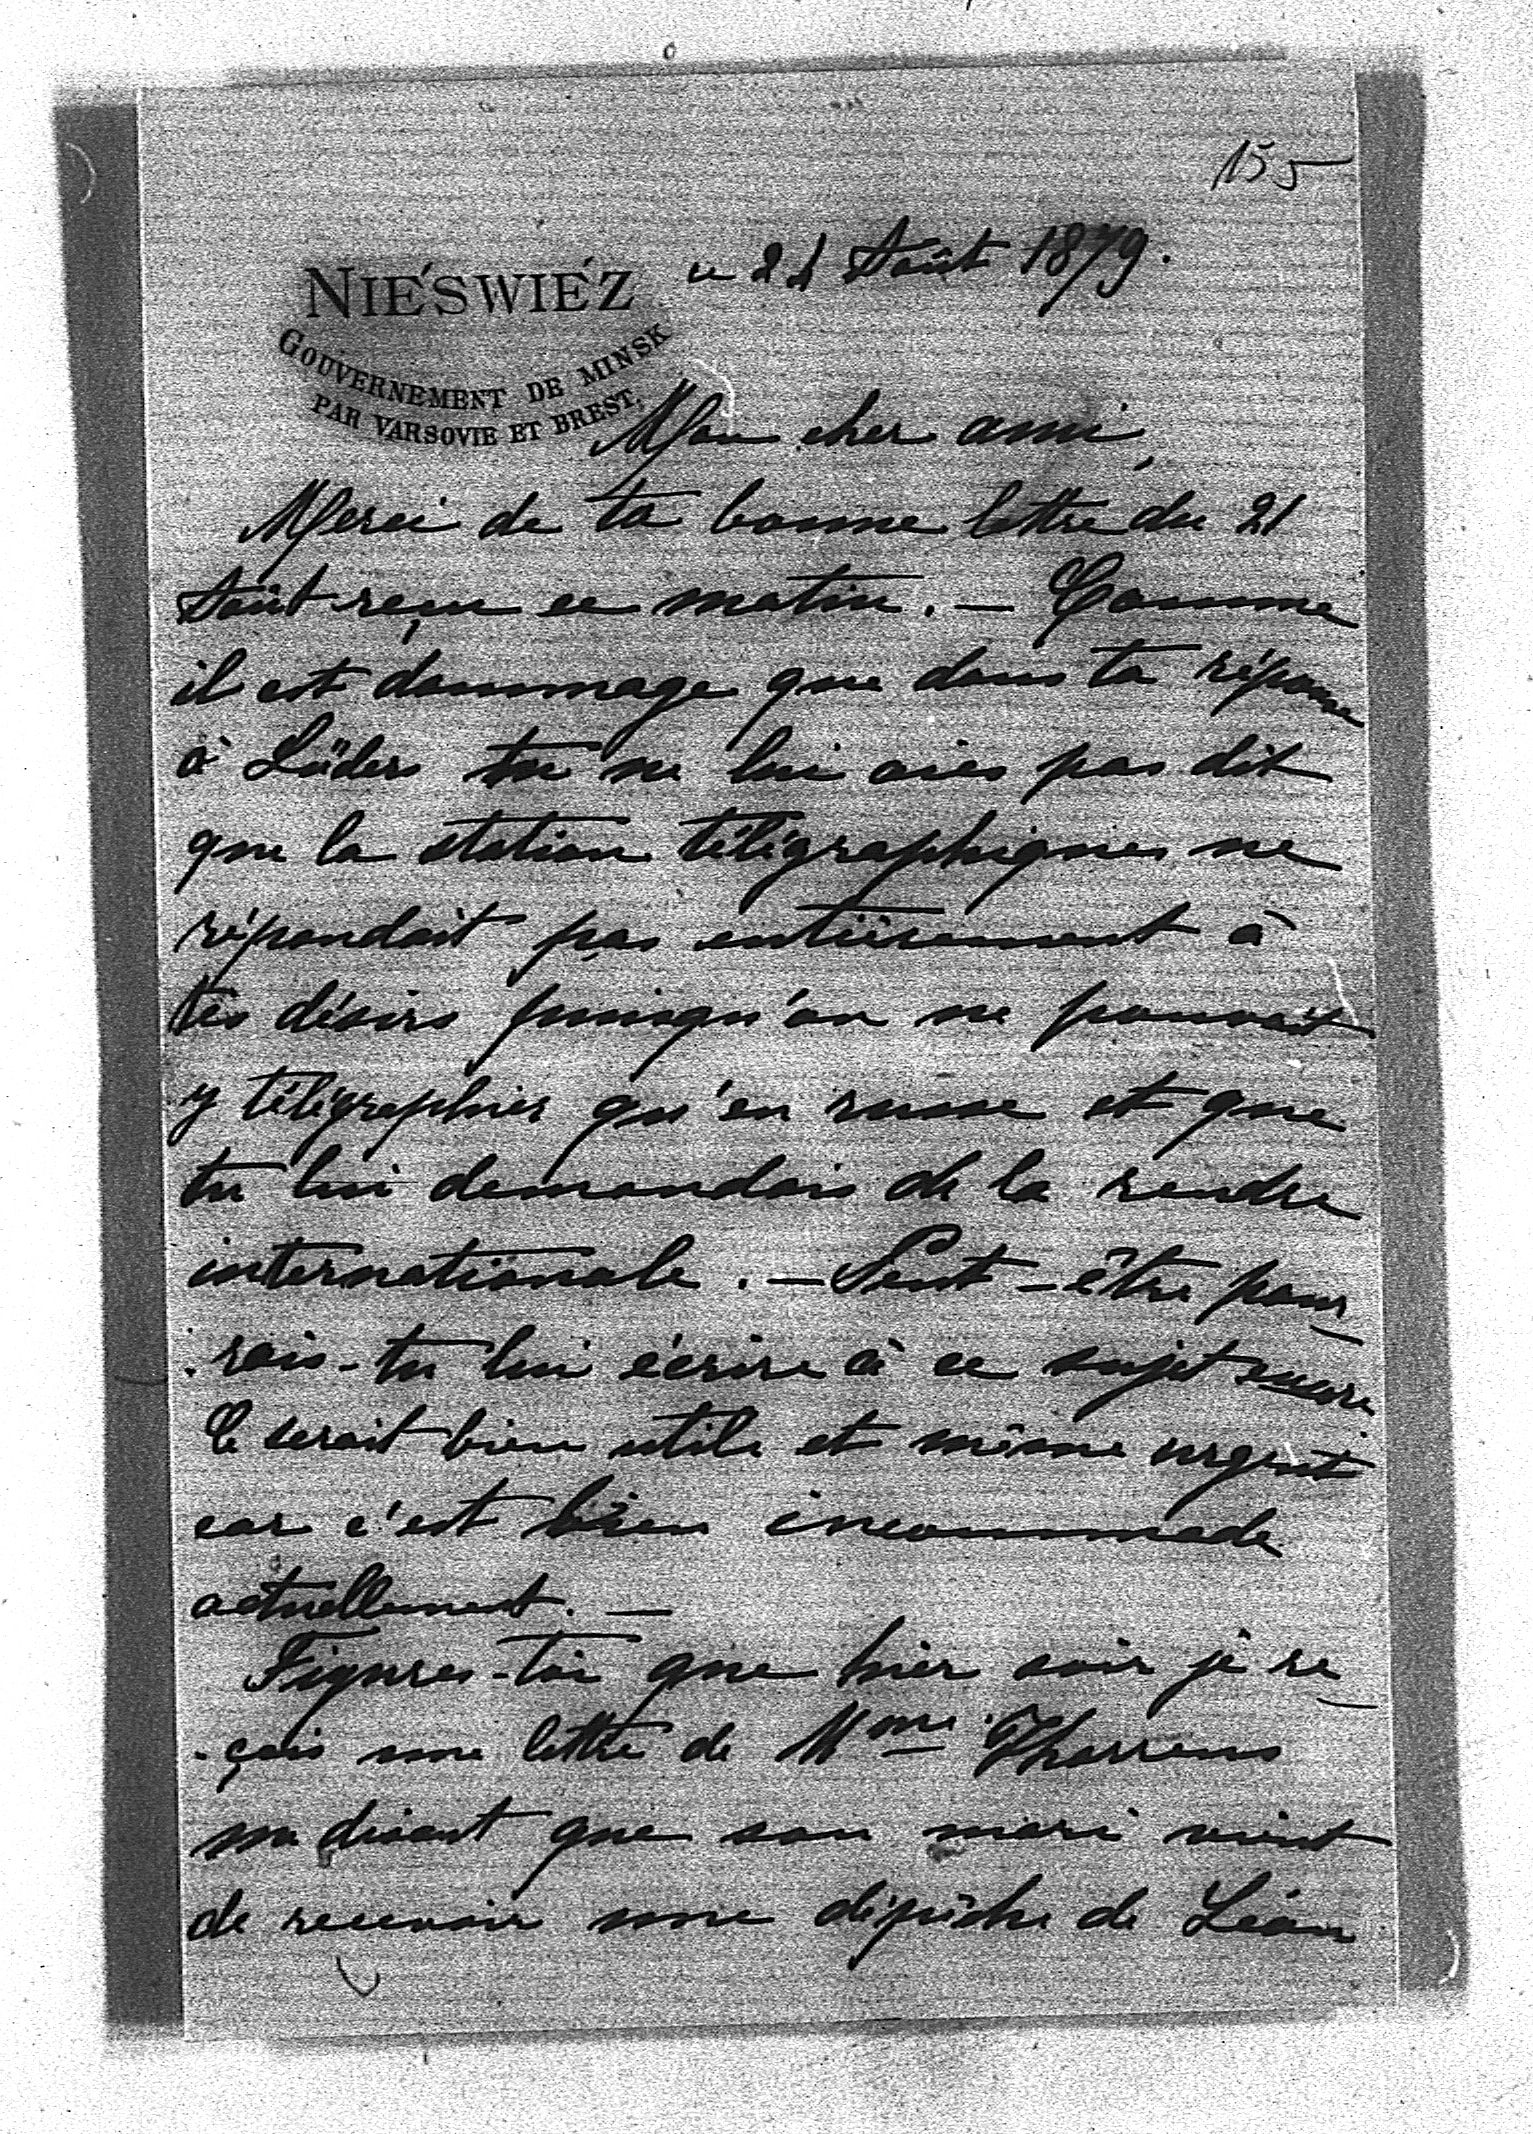 155
NIEŚWIEŹ ce 24 Août 1879.
GOUVERNEMENT DE MINSK
PAR VARSOVIE ET BREST.
Mon cher ami,
Merci de ta bonne lettre du 21
Août reçu ce matin. — Comme
il est dommage que dans ta réponse
à Lüders tu ne lui aies pas dit
que la station télégraphiques ne
répondait pas entièrement à
tes désirs puisqu'on ne pouvait
y télégraphier qu'en russe et que
tu lui demandais de la rendre
internationale. — Peut-être pour
rais-tu lui écrire à ce sujet encore
Ce serait bien utile et même urgent
car c'est bien incommode
actuellement. —
Figures-toi que hier soir je re
çois une lettre de Mme
me disant que son mari vient
de recevoir une dépêche de Léon